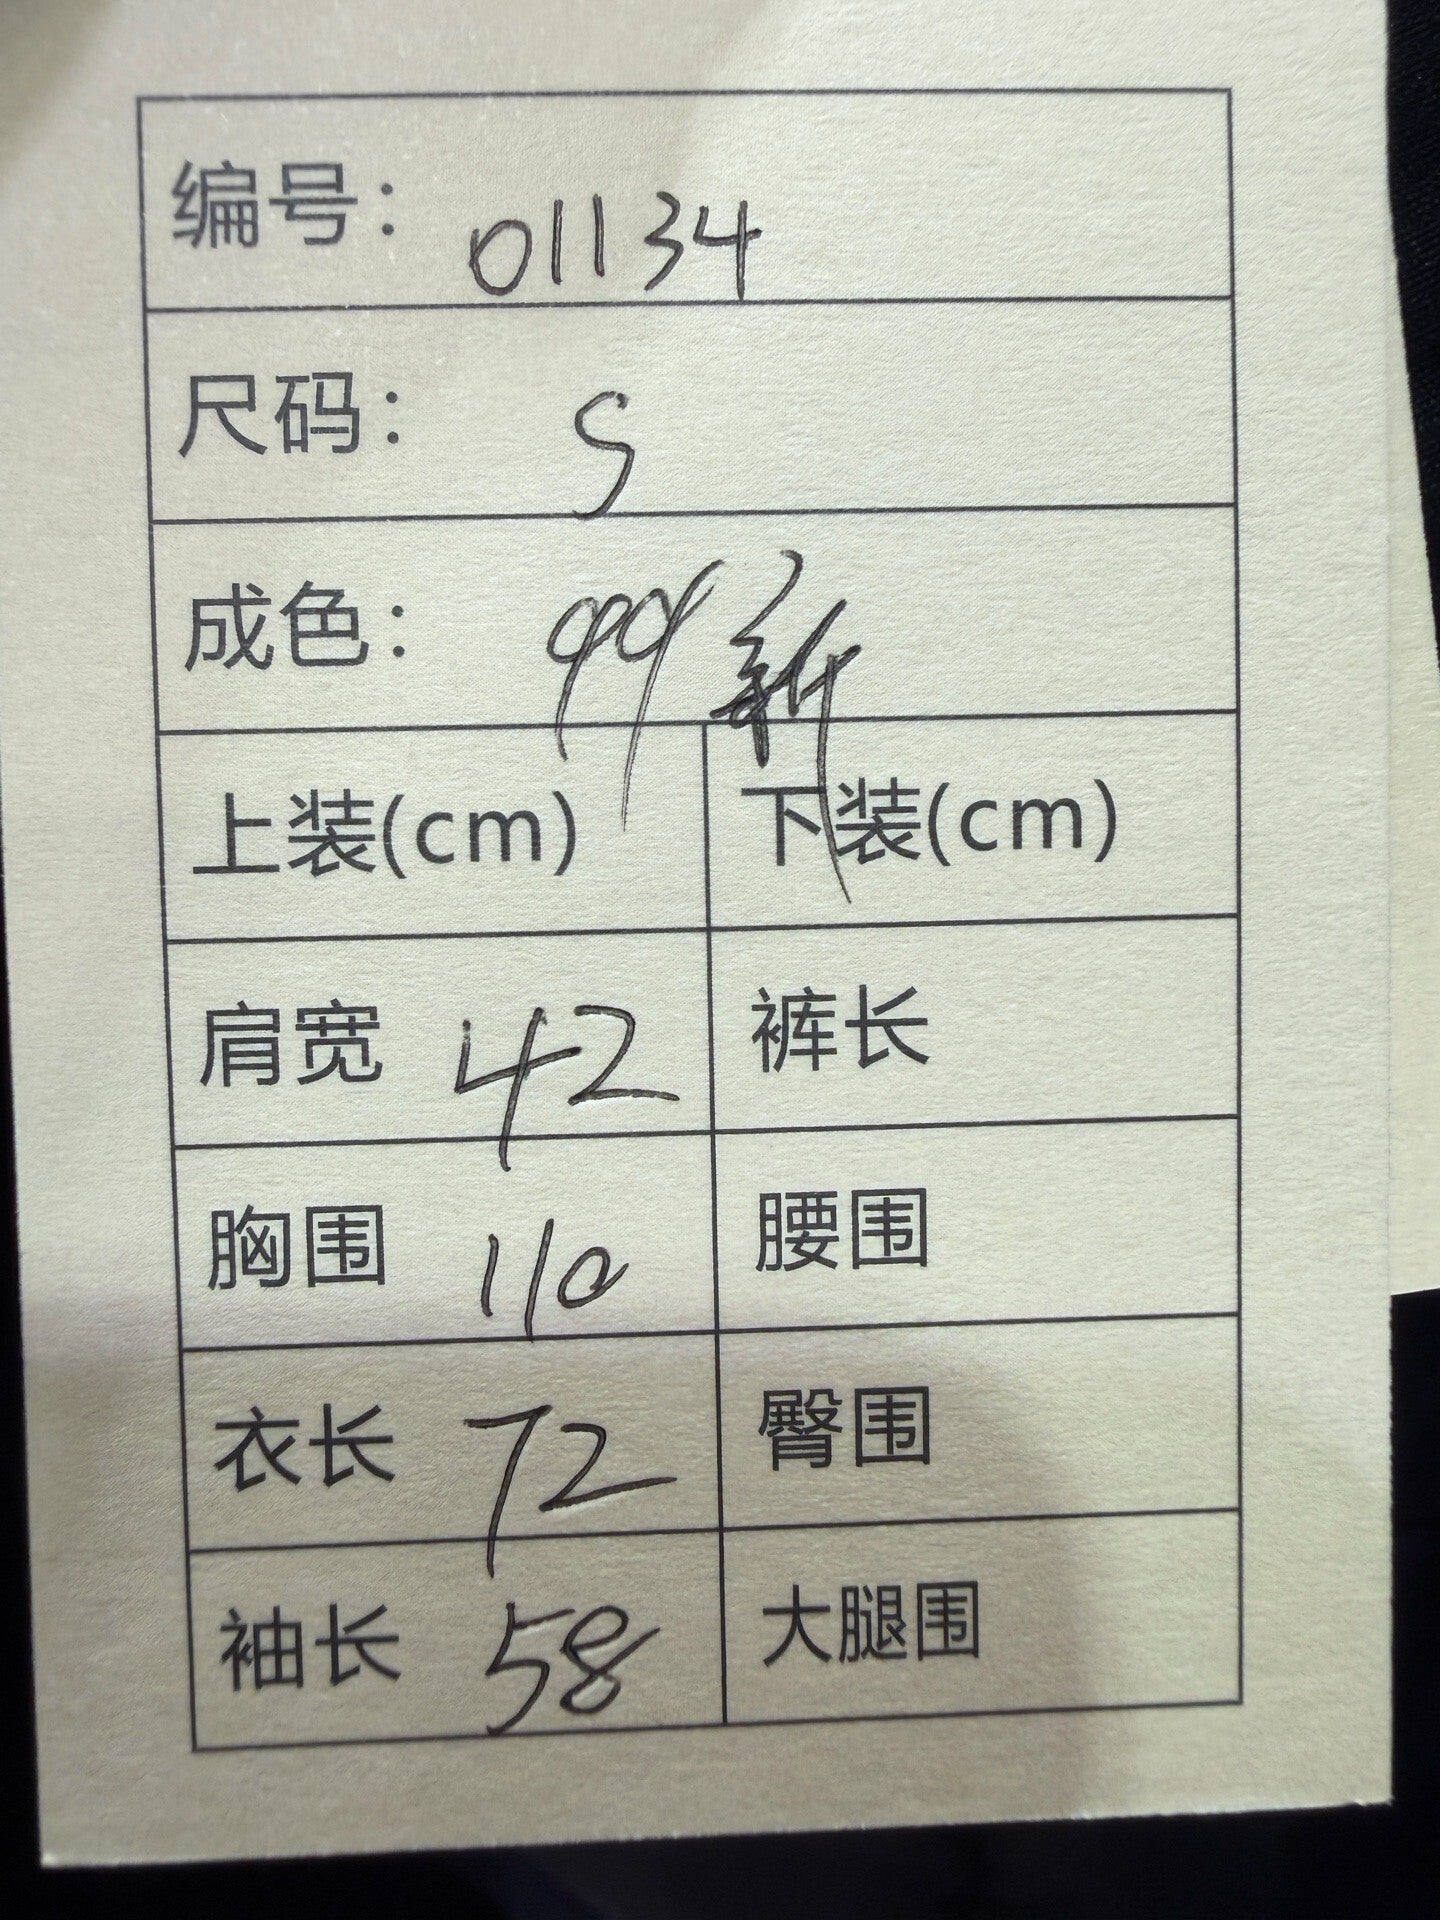 编号：01134
尺码：S
成色：99新
上装(cm) 下装(cm)
肩宽 42 裤长
胸围 110 腰围
衣长 72 臀围
袖长 58 大腿围